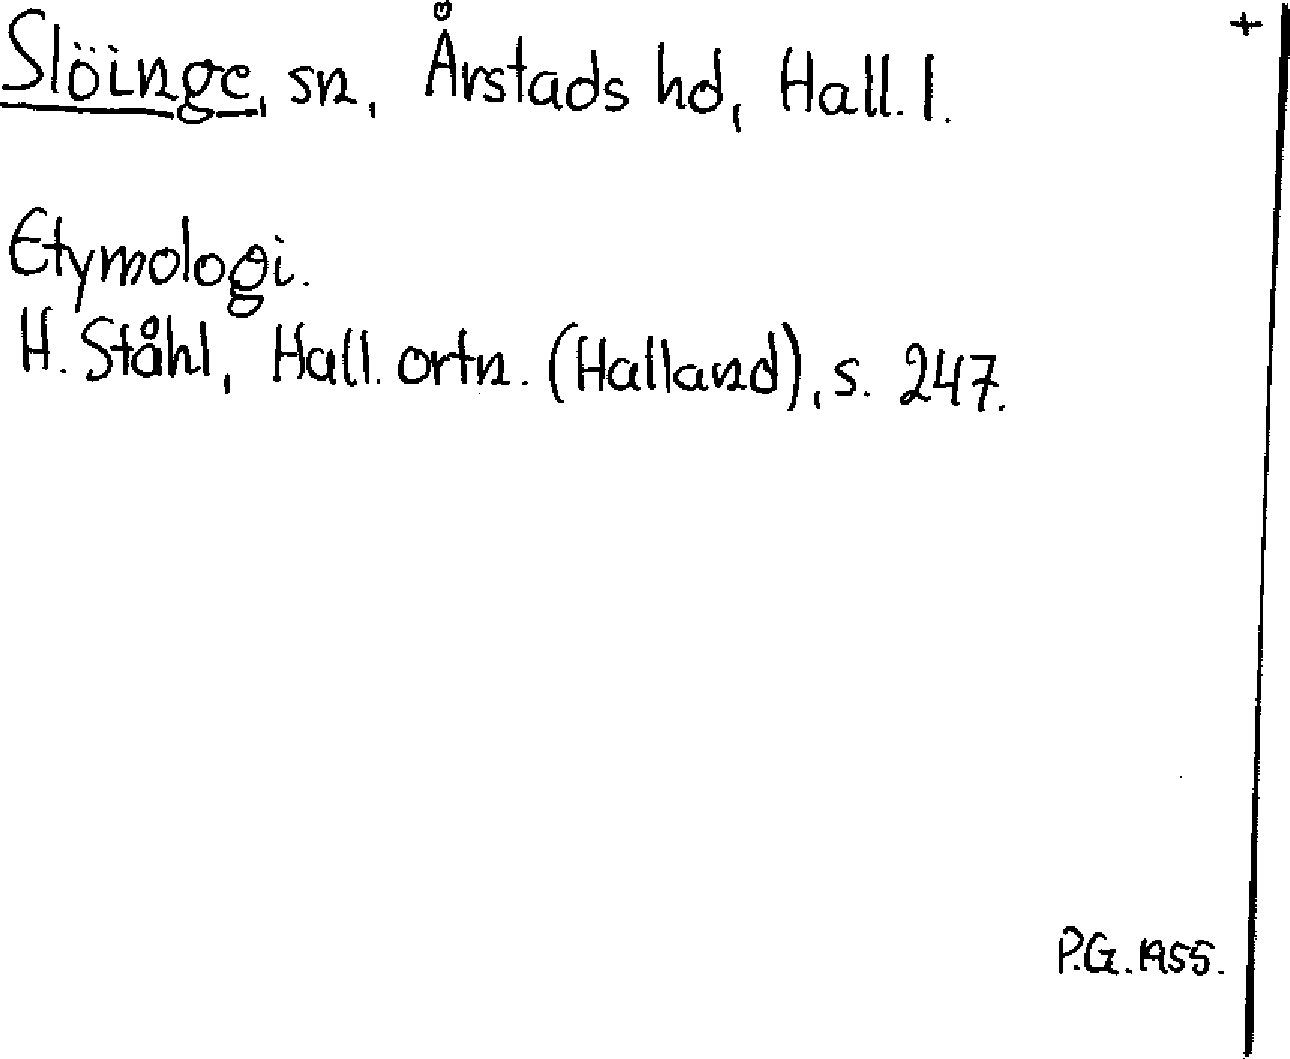 Slöinge, sn, Årstads hd, Hall. l. +
Etymologi.
H. Ståhl, Hall. ortn. (Halland), s. 247.
P.G. 1955.